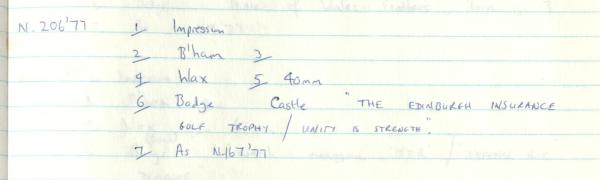 N. 206'77 1 Impression
2 B'ham 3
4 Wax 5 40mm
6 Badge Castle "THE EDINBURGH INSURANCE
GOLF TROPHY / UNITY IS STRENGTH".
7 As N.167'77